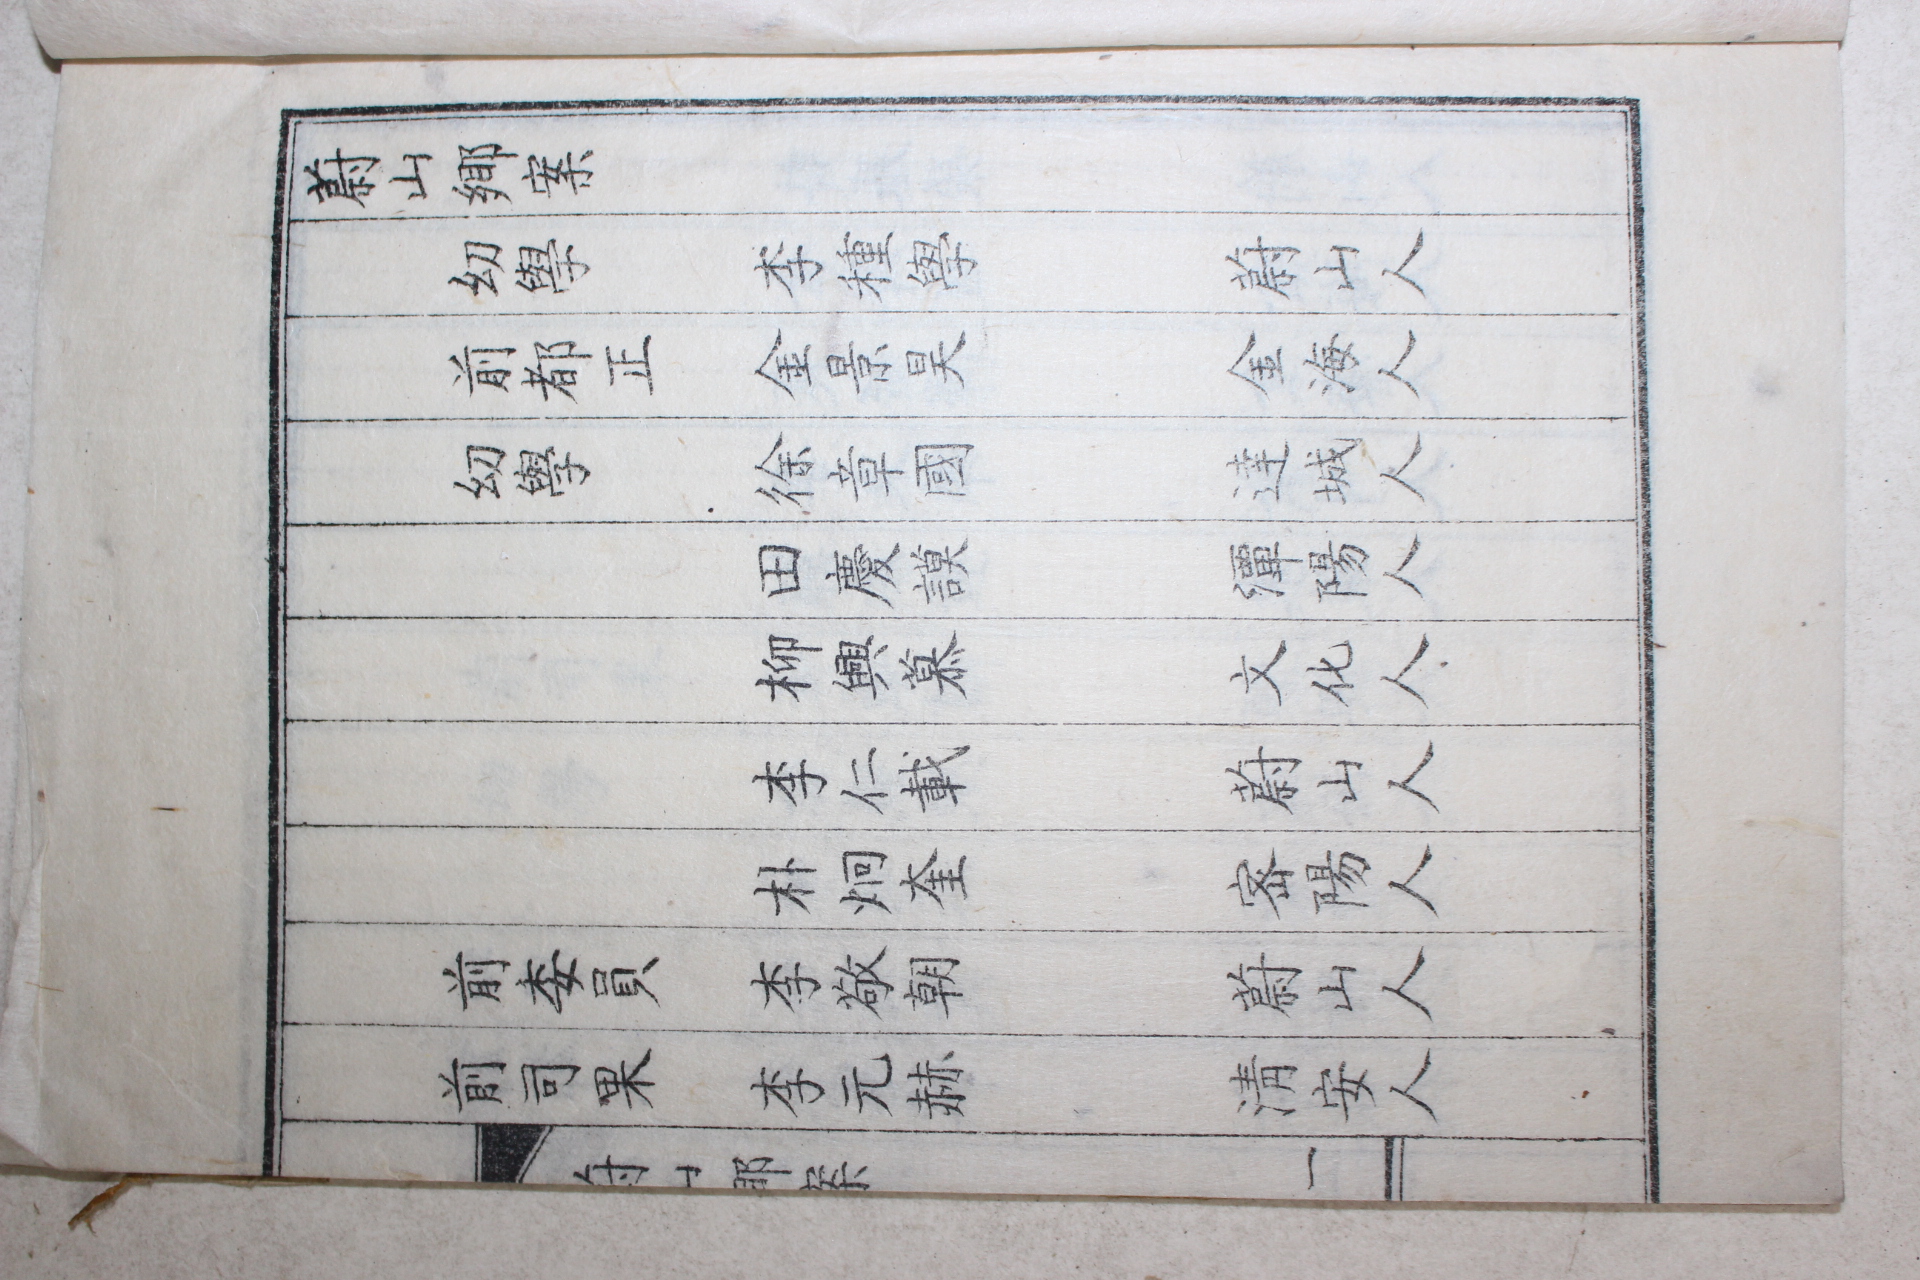 蔚山鄕案
幼學 李種學 蔚山人
前都正 金景昊 金海人
幼學 徐章國 達城人
田慶謨 潭陽人
柳興慕 文化人
李仁載 蔚山人
朴炯奎 密陽人
前委員 李敬朝 蔚山人
前司果 李元赫 清安人
蔚山鄕案 一